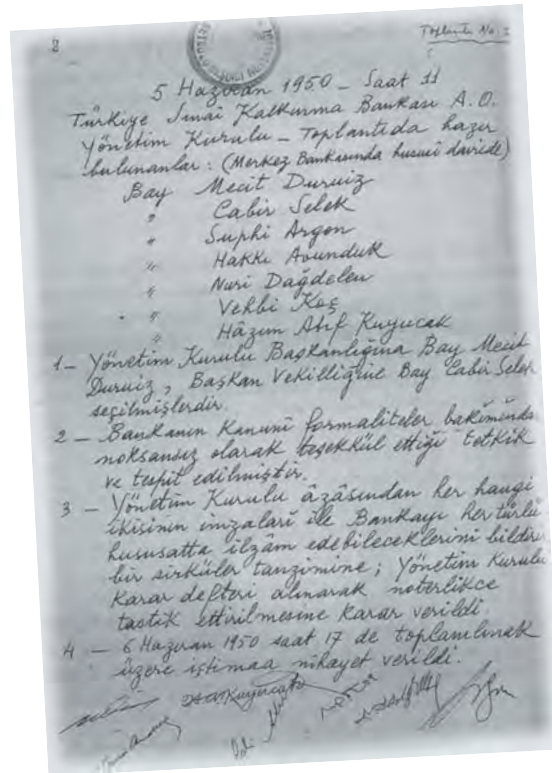 2
Toplantı No: 1
5 Haziran 1950 – Saat 11
Türkiye Sınai Kalkınma Bankası A.O.
Yönetim Kurulu – Toplantıda hazır
bulunanlar: (Merkez Bankasında hususi dairede)
Bay Mecit Duruiz
" Cabir Selek
" Suphi Argon
" Hakkı Avunduk
" Nuri Dağdelen
" Vehbi Koç
" Hâzım Atıf Kuyucak
1 – Yönetim Kurulu Başkanlığına Bay Mecit
Duruiz, Başkan Vekilliğine Bay Cabir Selek
seçilmişlerdir.
2 – Bankanın kanuni formaliteler bakımından
noksansız olarak teşekkül ettiği tetkik
ve tespit edilmiştir.
3 – Yönetim Kurulu âzâsından her hangi
ikisinin imzaları ile Bankayı her türlü
hususatta ilzâm edebileceklerini bildirir
bir sirküler tanzimine; Yönetim Kurulu
Karar defteri alınarak noterlikce
tastik ettirilmesine karar verildi.
4 – 6 Haziran 1950 saat 17 de toplanılmak
üzere iştimaa nihayet verildi.